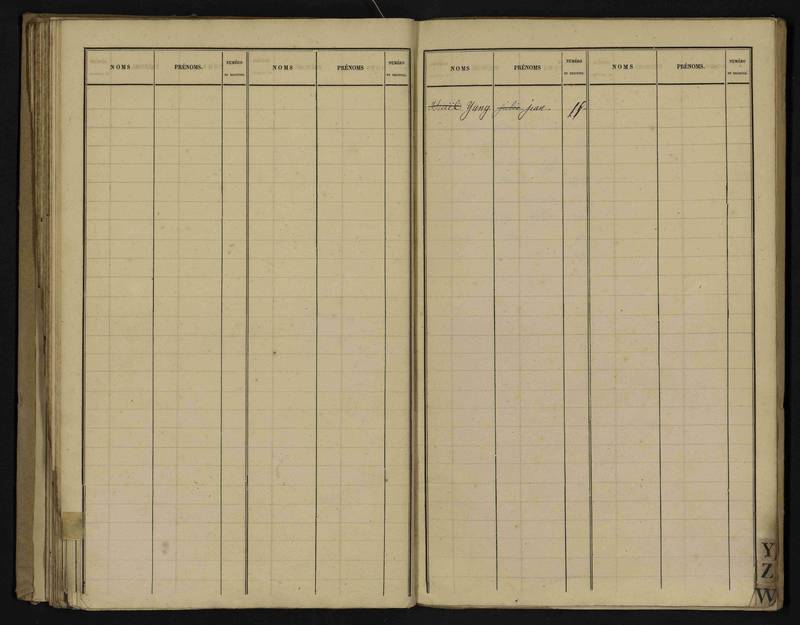 NOMS PRÉNOMS. NUMÉRO DU REGISTRE. NOMS PRÉNOMS NUMÉRO DU REGISTRE.
NOMS PRÉNOMS NUMÉRO DU REGISTRE. NOMS PRÉNOMS. NUMÉRO DU REGISTRE.
Yung jean
Y
Z
W